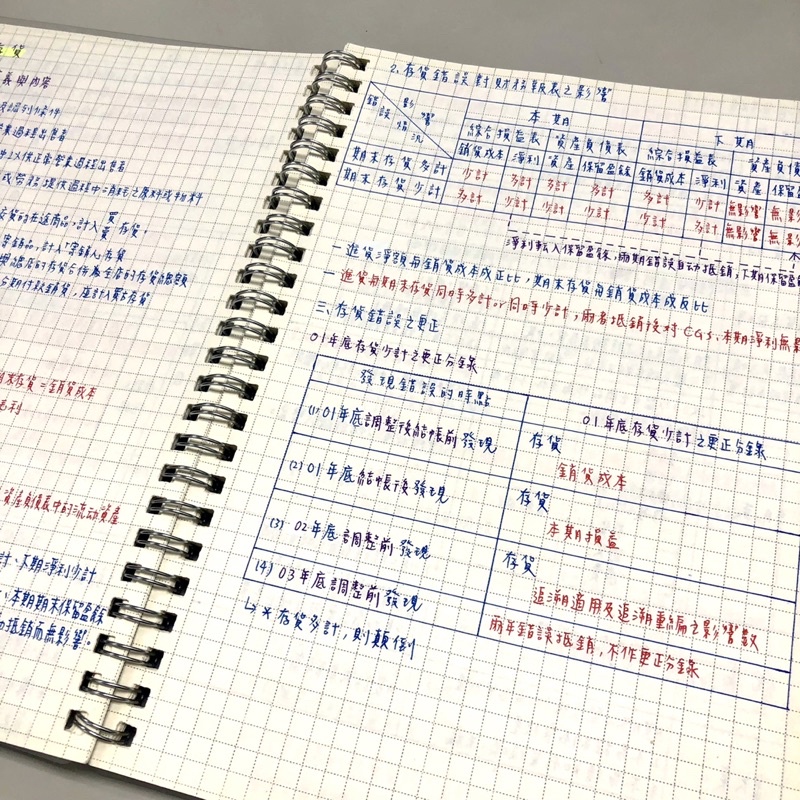 存貨
義與內容
業過程出售者
供正常營業過程出售者
或勞務提供過程中消耗之原料或物料
買賣
的在途商品,計入買方存貨。
寄銷品,計入「寄銷人」存貨
分期付款銷貨,應計入買方存貨
期末存貨=銷貨成本
毛利
資產負債表中的流動資產
計、下期淨利少計
、本期期末保留盈餘
抵銷而無影響。
2. 存貨錯誤對財務報表之影響
影響
錯誤情況
本期
下期
綜合損益表 資產負債表 綜合損益表 資產負債
銷貨成本 淨利 資產 保留盈餘 銷貨成本 淨利 資產 保留盈
期末存貨多計 少計 多計 多計 多計 多計 少計 無影響 無影
期末存貨少計 多計 少計 少計 少計 少計 多計 無影響 無影
淨利轉入保留盈餘,兩期錯誤自動抵銷,下期保留盈餘
一進貨淨額與銷貨成本成正比,期末存貨與銷貨成本成反比
一進貨與期末存貨同時多計or同時少計,兩者抵銷後對CGS、本期淨利無影
三、存貨錯誤之更正
01年底存貨少計之更正分錄
發現錯誤的時點 01年底存貨少計之更正分錄
(1) 01年底調整後結帳前發現 存貨
銷貨成本
(2) 01年底結帳後發現 存貨
本期損益
(3) 02年底調整前發現 存貨
追溯適用及追溯重編之影響數
(4) 03年底調整前發現 兩年錯誤抵銷,不作更正分錄
↳ * 存貨多計,則顛倒